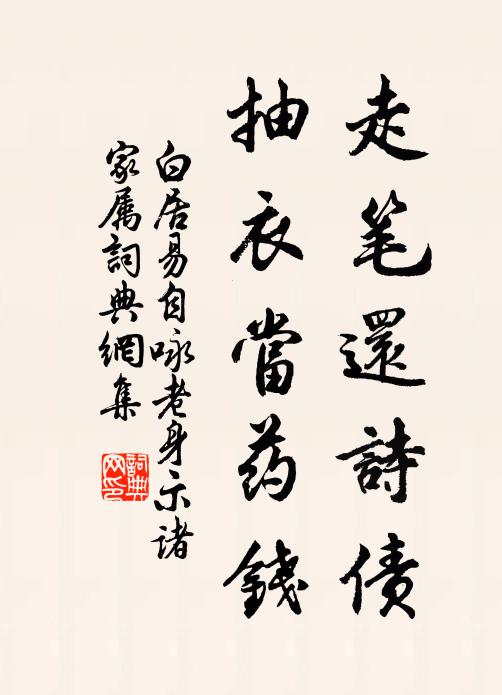 走笔還詩債
抽衣當药錢
白居易自咏老身示諸
家属詞典網集
詞典
网印